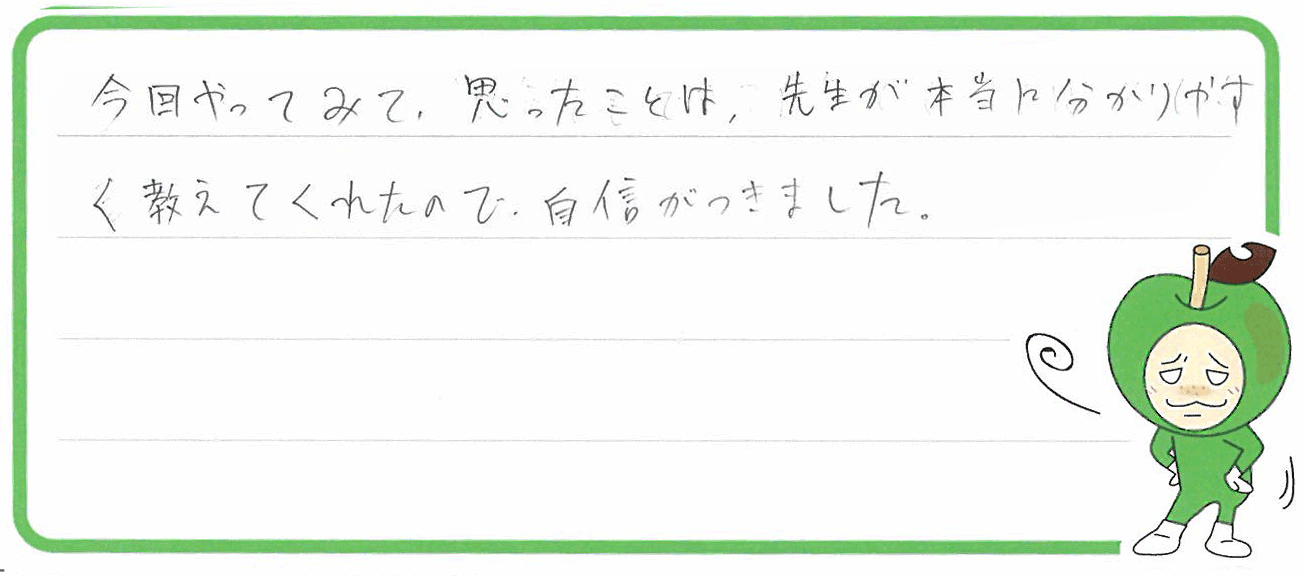 今回やってみて、思ったことは、先生が本当に分かりやす
く教えてくれたので、自信がつきました。